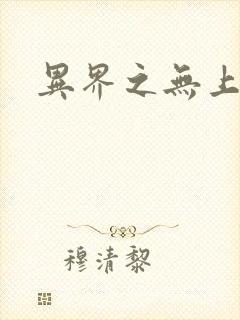 異界之無上
穆清黎